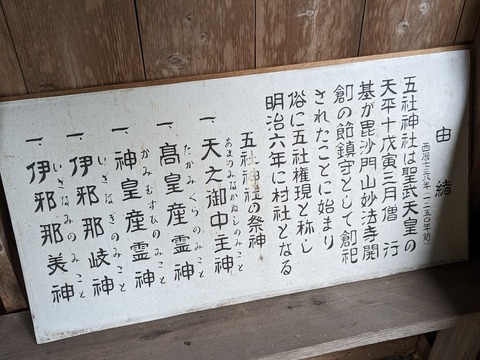 由緒
西暦七三年(一二五〇年前)
五社神社は聖武天皇の
天平十戊寅三月僧 行
基が毘沙門山妙法寺開
創の節鎮守として創祀
されたことに始まり
俗に五社権現と称し
明治六年に村社となる
五社神社の祭神
あまのみなかぬしのみこと
一、天之御中主神
たかみくらのみこと
一、髙皇産霊神
かみむすびのみこと
一、神皇産霊神
いざなぎのみこと
一、伊邪那岐神
いざなみのみこと
一、伊邪那美神